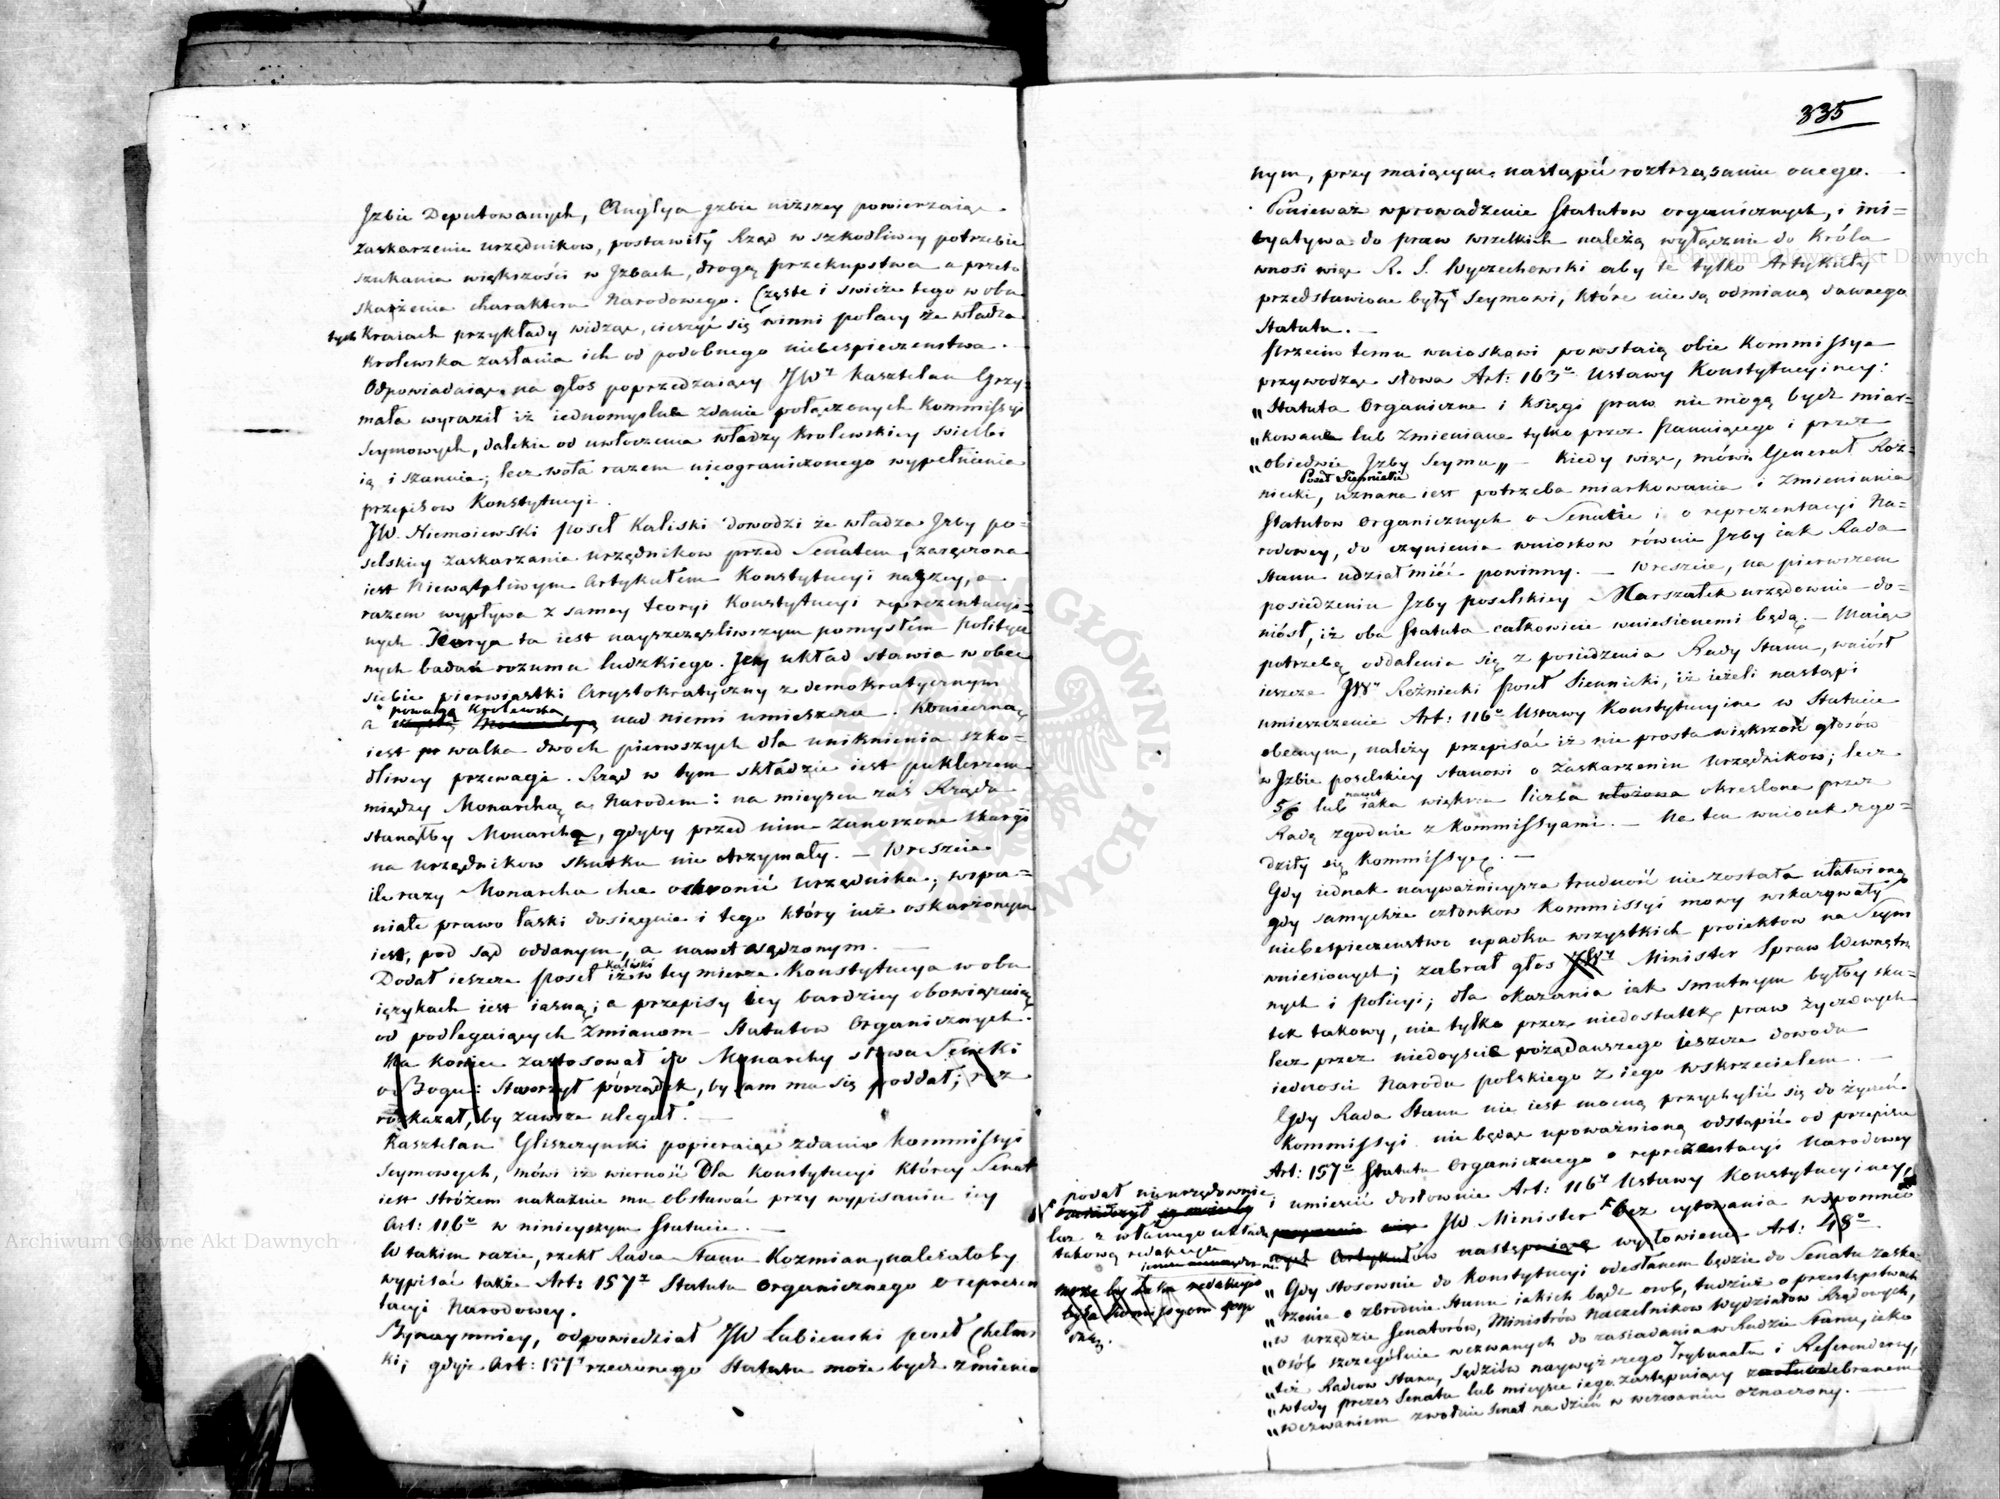 Izbie Deputowanych, Anglya Izbie niższey powierzaiąc
zaskarzenie urzędnikow, postawiły Rząd w szkodliwey potrzebie
szukania większości w Izbach, drogą przekupstwa a przeto
skażenia charakteru Narodowego. Częste i swieże tego w obu
tych Kraiach przykłady widząc, cieszyć się winni polacy że władza
Krolewska zasłania ich od podobnego niebespieczenstwa.
Odpowiadaiąc na głos poprzedzaiący JWy Kasztelan Grzy-
mała wyraził iż iednomyslne zdanie połączonych Kommissyi
Seymowych, dalekie od uwłoczenia władzy Krolewskiey swielbi
ią i szanuie; lecz woła razem nieograniczonego wypełnienia
przepisow Konstytucyi.
JW. Niemoiewski poseł Kaliski dowodzi że władza Izby po-
selskiey zaskarzania urzędnikow przed Senatem, zaręczona
iest Niewątpliwym Artykułem Konstytucyi naszey, a
razem wypływa z samey teoryi Konstytucyi reprezentacyi-
nych. Teorya ta iest nayszczęsliwszym pomysłem Polityczn
nych badań rozumu ludzkiego. Jey układ stawia w obec
siebie pierwiastki Arystokratyczny z demokratycznym
a powagą Krolewska nad niemi umieszcza. Konieczną
iest walka dwoch pierwszych dla uniknienia szko-
dliwey przewagi. Rząd w tym składzie iest puklerzem
między Monarchą a Narodem: na mieyscu zaś Rządu
stanąłby Monarcha, gdyby przed nim zanoszone skargi
na urzędnikow skutku nie otrzymały. — Wreszcie
ile razy Monarcha chce ochronić urzędnika, wspa-
niałe prawo łaski dosięgnie i tego który iuż oskarżonym
iest, pod sąd oddanym, a nawet osądzonym. —
Dodał ieszcze poseł Kaliski iż w tey mierze Konstytucya w obu
ięzykach iest iasną; a przepisy iey bardziey obowiązuią
od podlegaiących zmianom Statutow Organicznych.
Na koniec zastosował do Monarchy słowa Seneki
o Bogu: Stworzył porządek, by sam mu się poddał; raz
rozkazał, by zawsze ulegał. —
Kasztelan Gliszczynski popieraiąc zdanie Kommissyi
Seymowych, mówi iż wierność dla Konstytucyi którey Senat
iest stróżem nakazuie mu obstawać przy wypisaniu iey
Art: 116o w ninieyszym Statucie. —
W takim razie, rzekł Radca Stanu Kozmian, należałoby
wypisać także Art: 157y Statutu Organicznego o reprezen
tacyi Narodowey.
Bynaymniey, odpowiedział JW Łubienski poseł Chełms
ki; gdyż Art: 157y rzeczonego Statutu może bydź zmienio
335
nym, przy maiącym nastąpić roztrząsaniu onego.
Ponieważ wprowadzenie Statutow organicznych, i ini-
cyatywa do praw wszelkich należą wyłącznie do Króla
wnosi więc R. S. Wyczechowski aby te tylko Artykuły
przedstawione były Seymowi, które nie są odmianą dawnego
Statutu. —
Przeciw temu wnioskowi powstaią obie Kommissye
przywodząc słowa Art: 163o Ustawy Konstytucyiney:
„Statuta Organiczne i Księgi praw nie mogą bydź miar-
„kowane lub zmieniane tylko przez Panuiącego i przez
„obiedwie Izby Seymu„ — Kiedy więc, mówi Generał Roż-
niecki, Poseł Siennicki uznana iest potrzeba miarkowania i zmieniania
Statutow organicznych o Senacie i o reprezentacyi Na-
rodowey, do czynienia wniosków równie Izby iak Rada
Stanu udział mieć powinny. — Wreszcie, na pierwszem
posiedzeniu Izby poselskiey Marszałek urzędownie do-
niósł, iż oba Statuta całkowicie wniesionemi będą. — Maiąc
potrzebę oddalenia się z posiedzenia Rady Stanu, wniósł
ieszcze JWy Rożniecki Poseł Siennicki, iż ieżeli nastąpi
umieszczenie Art: 116o Ustawy Konstytucyine w Statucie
obecnym, należy przepisać iż nie prosta większość głosów
w Izbie poselskiey stanowi o zaskarzeniu urzędników; lecz
5/6 lub nawet iaka większa liczba ułożona określona przez
Radę zgodnie z Kommissyami. — Na ten wniosek zgo-
dziły się Kommissye. —
Gdy iednak nayważnieysza trudność nie została ułatwioną
gdy samychże członkow Kommissyi mowy wskazywały
niebespieczenstwo upadku wszystkich proiektow na Seym
wniesionych; zabrał głos JWy Minister Spraw Wewnętrz
nych i Policyi; dla okazania iak smutnym byłby sku-
tek takowy, nie tylko przez niedostatek praw życzonych
lecz przez niedoyście pożądanszego ieszcze dowodu
iedności Narodu polskiego z iego wskrzesicielem. —
Gdy Rada Stanu nie iest mocną przychylić się do życzeń
Kommissyi nie będąc upoważnioną odstąpić od przepisu
Art: 157o Statutu Organicznego o reprezentacyi Narodowey
i umiescić dosłownie Art: 116y Ustawy Konstytucyiney,
JW Minister bez cytowania wspomnio
nych Artykułow następnie wysłowienie Art: 18o
podał nieurzędownie
lecz z własnego układu
takową redakcyą
może by taka redakcya
była Kommissyom przy
„Gdy stosownie do Konstytucyi odesłanem będzie do Senatu zaska-
„rzenie o zbrodnie Stanu iakich bądź osob, tudzież o przestępstwach
„w urzędzie Senatorów, Ministrów Naczelnikow Wydziałow Rządowych,
„osób szczególnie wezwanych do zasiadania w Radzie Stanu, iako
„też Radcow Stanu, Sędziów naywyższego Trybunału i Referendarzy,
„wtedy prezes Senatu lub mieysce iego zastępuiący za odebranem
„wezwaniem zwołuie Senat na dzień w wezwaniu oznaczony. —